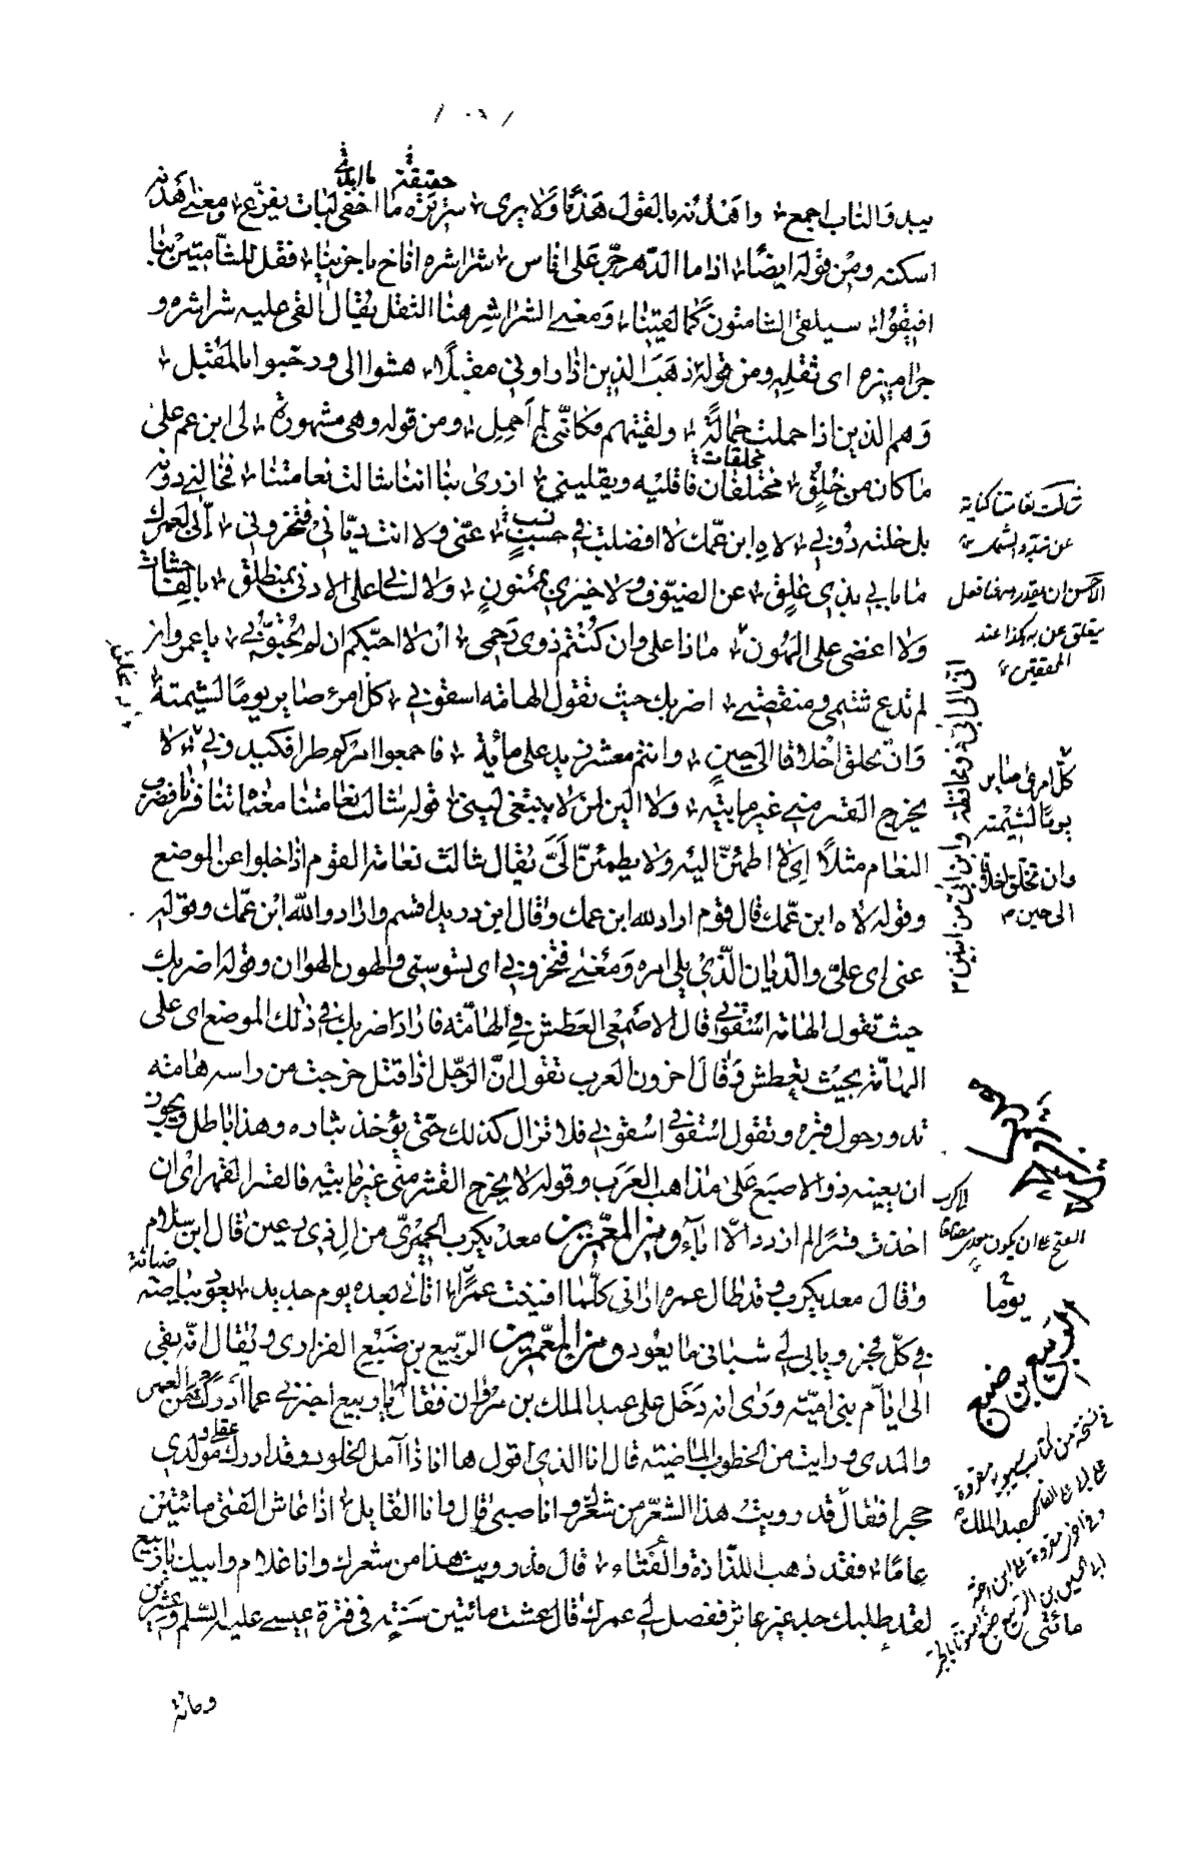 ١٠٦
حقيقة ما ابدى
يبدو الناب اجمع واهدئه بالقول هدءا ولو يرى سريرة ما اخفى لبات يفزع ومعنى اهدئه
اسكنه ومن قوله ايضا اذا ما الدهر جر على اناس شراشره اناخ باخرينا فقل للشامتين بنا
افيقوا سيلقى الشامتون كما لقينا ومعنى الشراشر هنا الثقل يقال القى عليه شراشره و
جراميزه اى ثقله ومن قوله ذهب الذين اذا راونى مقبلا هشوا الى ورحبوا بالمقبل
وهم الذين اذا حملت حمالة ولقيتهم فكاننى لم احمل ومن قوله وهى مشهورة لى ابن عم على
ما كان من خلق مختلفان فاقليه ويقلينى ازرى بنا اننا شالت نعامتنا فخالنى دونه
بل خلته دونى لاه ابن عمك لا افضلت فى حسب عنى ولا انت ديانى فتخزونى انى لعمرك
ما بابى بذى غلق عن الضيوف ولا خيرى بممنون ولا لسانى على الادنى بمنطلق بالفاحشات
ولا اغضى على الهون ماذا على وان كنتم ذوى رحمى ان لا احبكم ان لم تحبونى يا عمرو ان
لم تدع شتمى ومنقصتى اضربك حيث تقول الهامة اسقونى كل امرئ صاير يوما لشيمته
وان تخلق اخلاقا الى حين وانتم معشر زيد على مائة فاجمعوا امركم طرا فكيدونى لا
يخرج القسر منى غير مابية ولا الين لمن لا يبتغى لينى قوله شالت نعامتنا معناه تنافرنا فضرب
النعام مثلا اى لا اطمئن اليه ولا يطمئن الى يقال شالت نعامة القوم اذا خلوا عن الموضع
وقوله لاه ابن عمك قال قوم اراد لله ابن عمك وقال ابن دريد اقسم واراد والله ابن عمك وقوله
عنى اى على والديان الذى يلى امره ومعنى فتخزونى اى تسوسنى والهون الهوان وقوله اضربك
حيث تقول الهامة اسقونى قال الاصمعى العطش فى الهامة فاراد اضربك فى ذلك الموضع اى على
الهامة بحيث تعطش وقال اخرون العرب تقول ان الرجل اذا قتل خرجت من راسه هامة
تدور حول قبره وتقول اسقونى اسقونى فلا تزال كذلك حتى يؤخذ بثاره وهذا باطل ويجوز
ان يعينه ذو الاصبع على مذاهب العرب وقوله لا يخرج القسر منى غير مابية فالقسر القهر اى ان
اخذت قسرا لم ازدد الا اباء ومن المعمرين معديكرب الحميرى من ال ذى رعين قال ابن سلام
وقال معديكرب وقد طال عمره ارانى كلما افنيت عمرا اتانى بعده يوم جديد يعود بياضه
فى كل فجر ويابى لى شبابى ما يعود ومن المعمرين الربيع بن ضبع الفزارى ويقال انه بقى
الى ايام بنى امية وروى انه دخل على عبد الملك بن مروان فقال له يا ربيع اخبرنى عما ادركت من العمر
والمدى ورايت من الخطوب الماضية قال انا الذى اقول ها انا ذا آمل الخلود وقد ادرك مولدى
حجرا فقال قد رويت هذا الشعر من شعرك وانا صبى قال وانا القايل اذا عاش الفتى مائتين
عاما فقد ذهب اللذاذة والفتاء قال قد رويت هذا من شعرك وانا غلام وابيك يا ربيع
لقد طلبك جد غير عاثر ففصل لى عمرك قال عشت مائتين سنة فى فترة عيسى عليه السلم وعشرين
ومائة
شالت نعامتنا كناية
الاحسن ان يقدر
يتعلق عن به كذا عند
المحققين
انى ابى ابى ذو محافظة وابن ابى ابى من ابيين
كل امرئ صاير
يوما لشيمته
وان تخلق اخلاقا
الى حين
يوما
الربيع بن ضبع